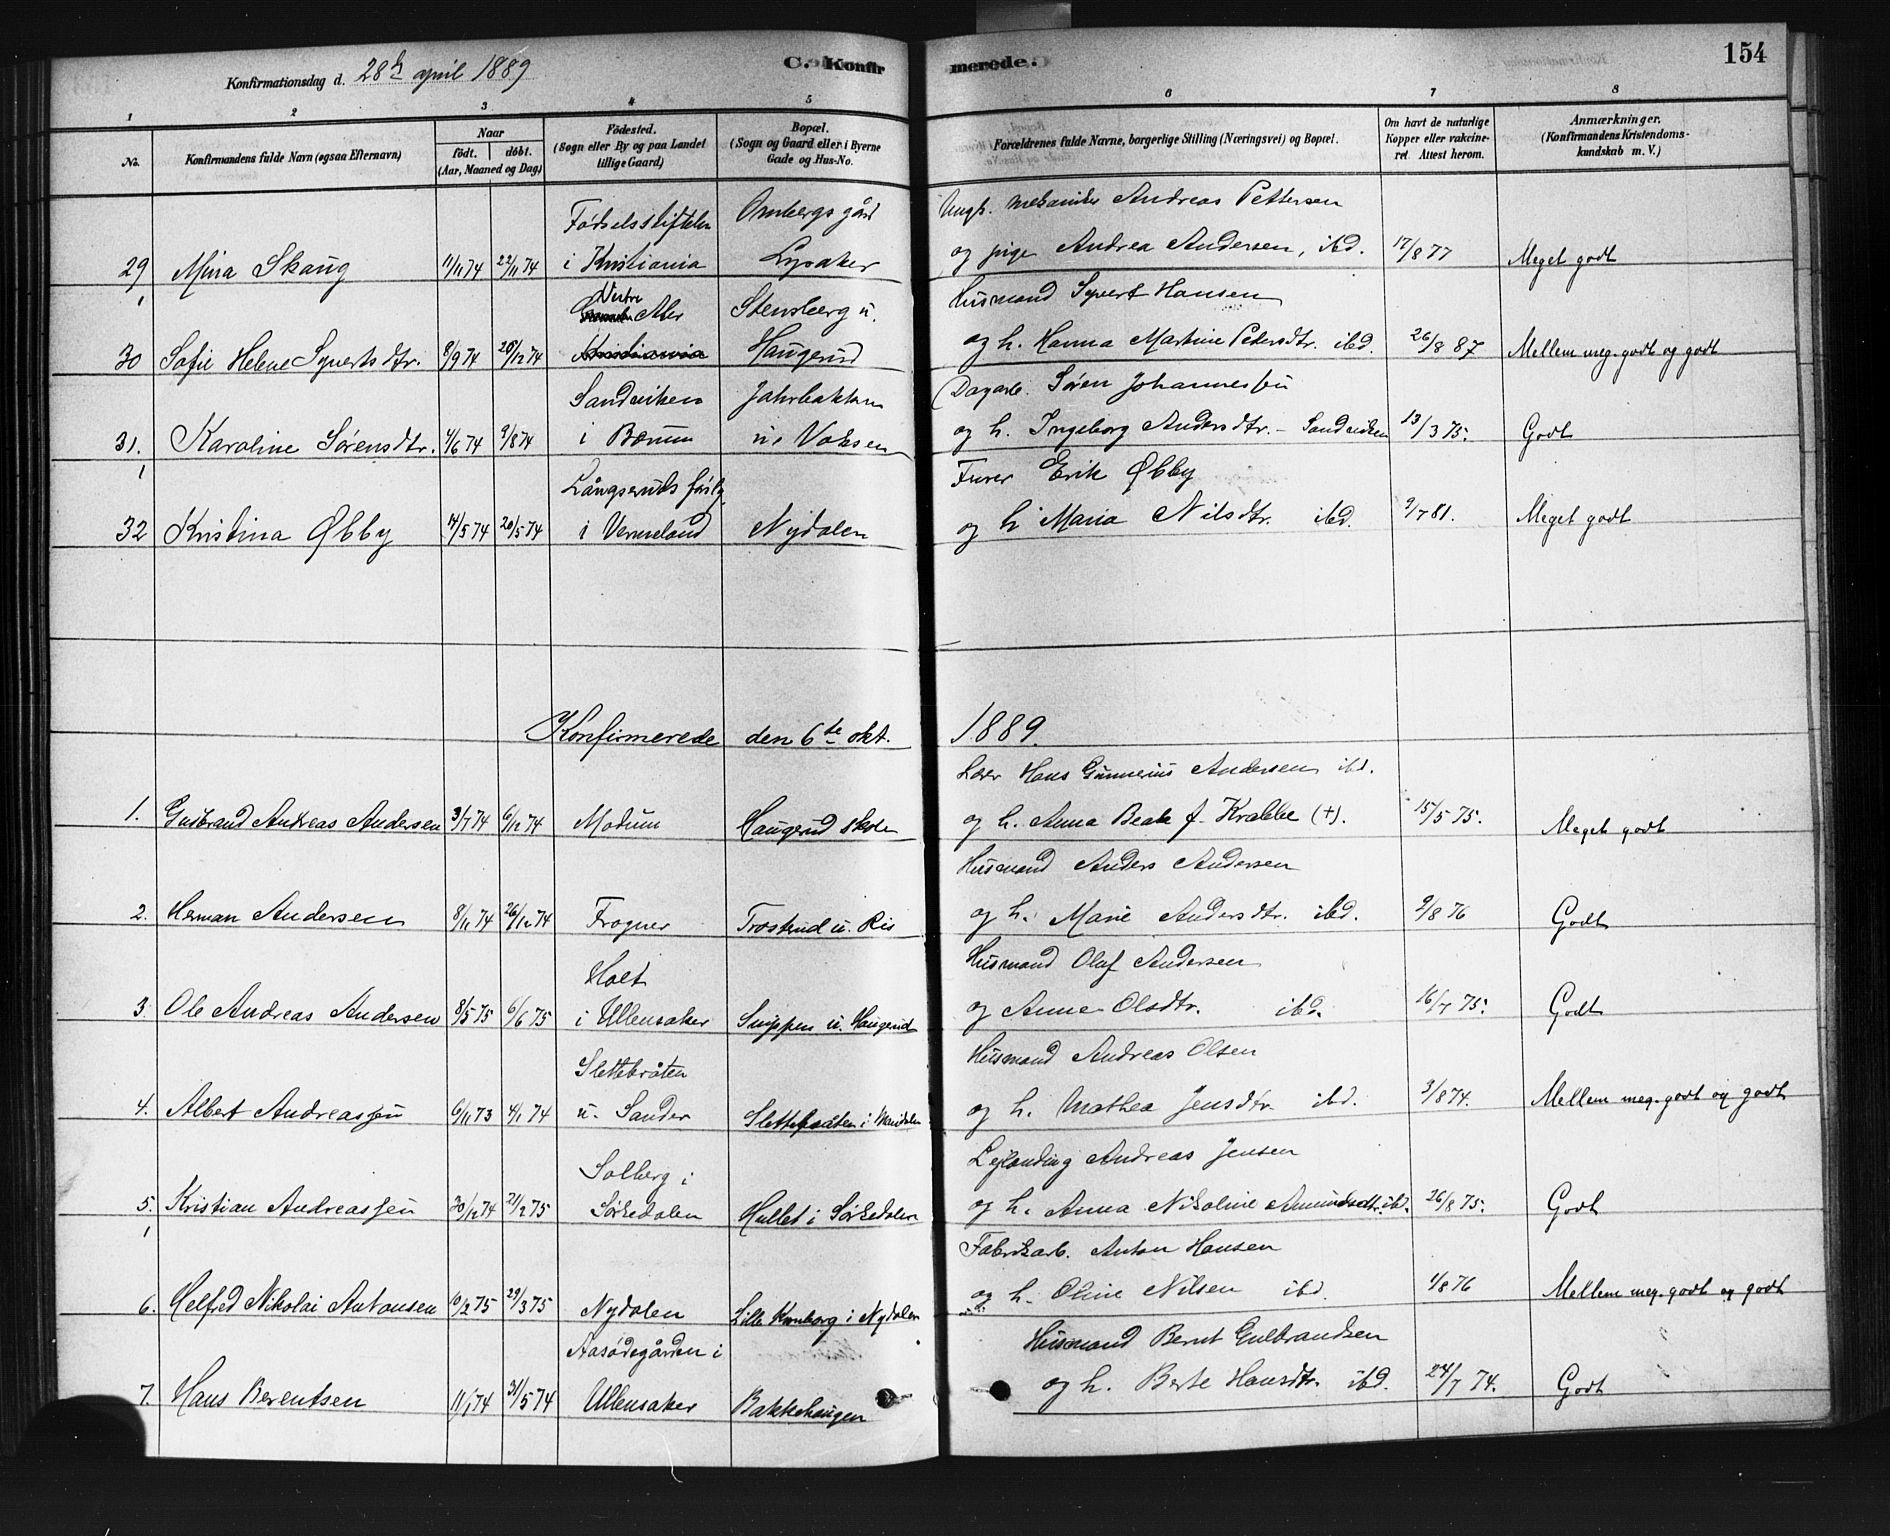 154
Konfirmationsdag d. 28de april 1889
C. Konfirmerede.
1 2 3 4 5 6 7 8
No.
Konfirmandens fulde Navn (ogsaa Efternavn)
Naar
født. døbt.
(Aar, Maaned og Dag)
Födested.
(Sogn eller By og paa Landet
tillige Gaard)
Bopæl.
(Sogn og Gaard eller i Byerne
Gade og Hus-No.
Forældrenes fulde Navne, borgerlige Stilling (Næringsvei) og Bopæl.
Om havt de naturlige
Kopper eller vakcineret
Attest herom.
Anmærkninger.
(Konfirmandens Kristendomskundskab
m. V.)
Fødselsstiftelsen Ombergs gård Ungk. mekaniker Andreas Pettersen
29 Mina Skaug 11/11 74 22/11 74 i Kristiania Lysaker og pige Andrea Andersen, ibd. 17/8 77 Meget godt
Vestre Aker Stensberg u. Husmand Syvert Hansen
30 Sofie Helene Syvertsdtr. 8/9 74 26/12 74 Kristiania Haugerud og h. Hanna Martine Pedersdtr. ibd. 26/8 87 Mellem meg. godt og godt
Sandviken Jahrbakken Dagarb. Søren Johannessen
31. Karoline Sørensdtr. 4/6 74 9/8 74 i Bærum u. Voksen og h. Ingeborg Andersdtr. - Sandviken 13/3 75. Godt
Långseruds förslg. Furer Erik Øbby
32 Kristina Øbby 14/5 74 20/5 74 i Vermeland Nydalen og h. Maria Nilsdtr. ibd. 9/7 81. Meget godt
Konfirmerede den 6te okt. 1889.
Lærer Hans Gunnerius Andersen ibd.
1. Gudbrand Andreas Andersen 3/7 74 6/12 74 Modum Haugerud skole og h. Anna Beate f. Krabbe (+). 15/5 75. Meget godt
Husmand Anders Andersen
2. Herman Andersen 8/11 74 26/12 74 Frogner Trosterud u. Ris og h. Marie Andersdtr. ibd. 9/8 76 Godt
Holt Husmand Oluf Andersen
3. Ole Andreas Andersen 8/5 75 6/6 75 i Ullensaker Snippen u. Haugerud og Anne Olsdtr. ibd. 16/7 75. Godt
Slettebråten Husmand Andreas Olsen
4. Albert Andreassen 6/11 73 4/1 74 u. Sander Slettebråten i Maridalen og h. Mathea Jensdtr. ibd. 3/8 74. Mellem meg. godt og godt
Solberg i Lejlending Andreas Jensen
5. Kristian Andreassen 30/12 74 21/2 75 Sørkedalen Hullet i Sørkedalen og h. Anna Nikoline Amundsdtr. ibd. 26/8 75. Godt
Fabrikarb. Anton Hansen
6. Helfred Nikolai Antonsen 10/2 75 29/3 75 Nydalen Lille Kanborg i Nydalen og h. Oline Nilsen ibd. 1/8 76 Mellem meg. godt og godt
Aasødegården i Husmand Bernt Gulbrandsen
7. Hans Berentsen 11/1 74 31/5 74 Ullensaker Bakkehaugen og h. Berte Hansdtr. ibd. 24/7 74. Godt